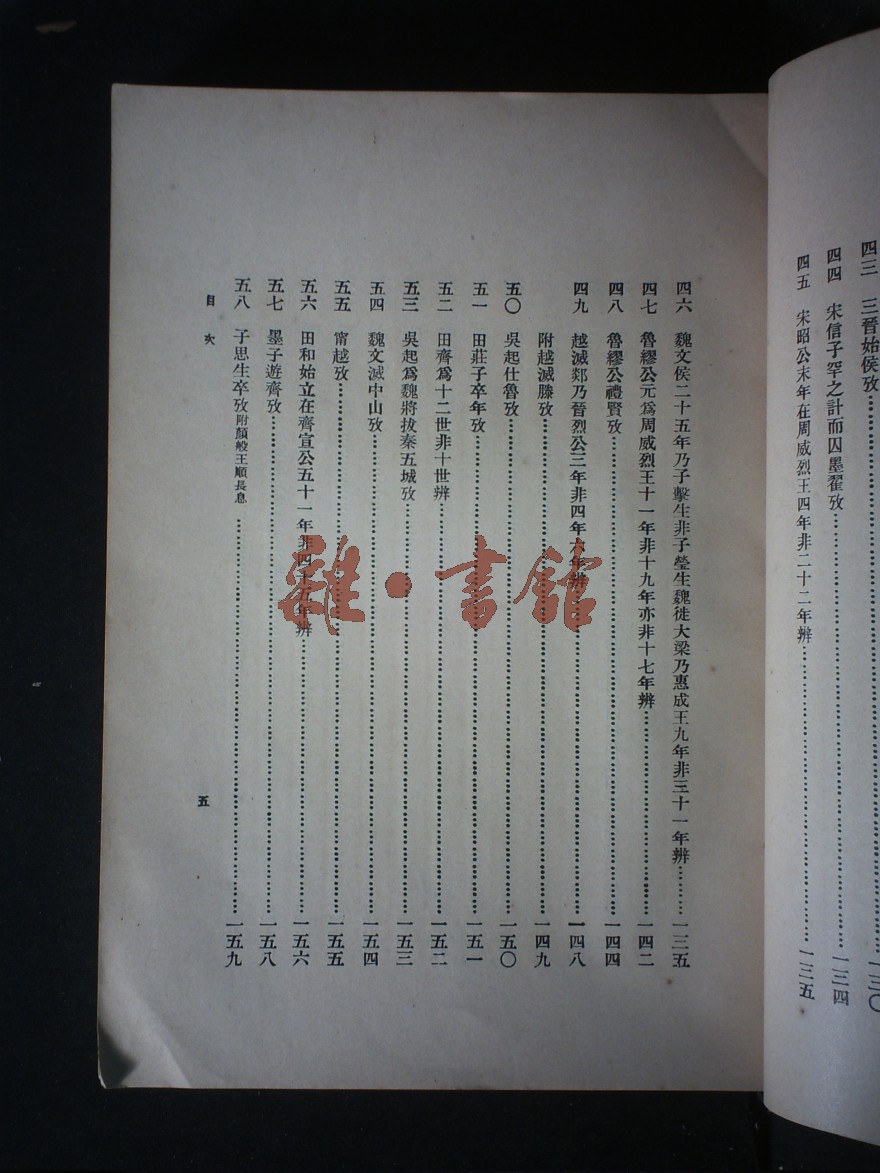 四三 三晉始侯攷 一三〇
四四 宋信子罕之計而囚墨翟攷 一三四
四五 宋昭公末年在周威烈王四年非二十二年辨 一三五
四六 魏文侯二十五年乃子擊生非子罃生魏徙大梁乃惠成王九年非三十一年辨 一三五
四七 魯繆公元爲周威烈王十一年非十九年亦非十七年辨 一四二
四八 魯繆公禮賢攷 一四四
四九 越滅郯乃晉烈公三年非四年六年辨 一四八
附越滅滕攷 一四九
五〇 吳起仕魯攷 一五〇
五一 田莊子卒年攷 一五一
五二 田齊爲十二世非十世辨 一五二
五三 吳起爲魏將拔秦五城攷 一五三
五四 魏文滅中山攷 一五四
五五 甯越攷 一五五
五六 田和始立在齊宣公五十一年非四十五年辨 一五六
五七 墨子遊齊攷 一五八
五八 子思生卒攷附顏般王順長息 一五九
目次 五
雜·書館